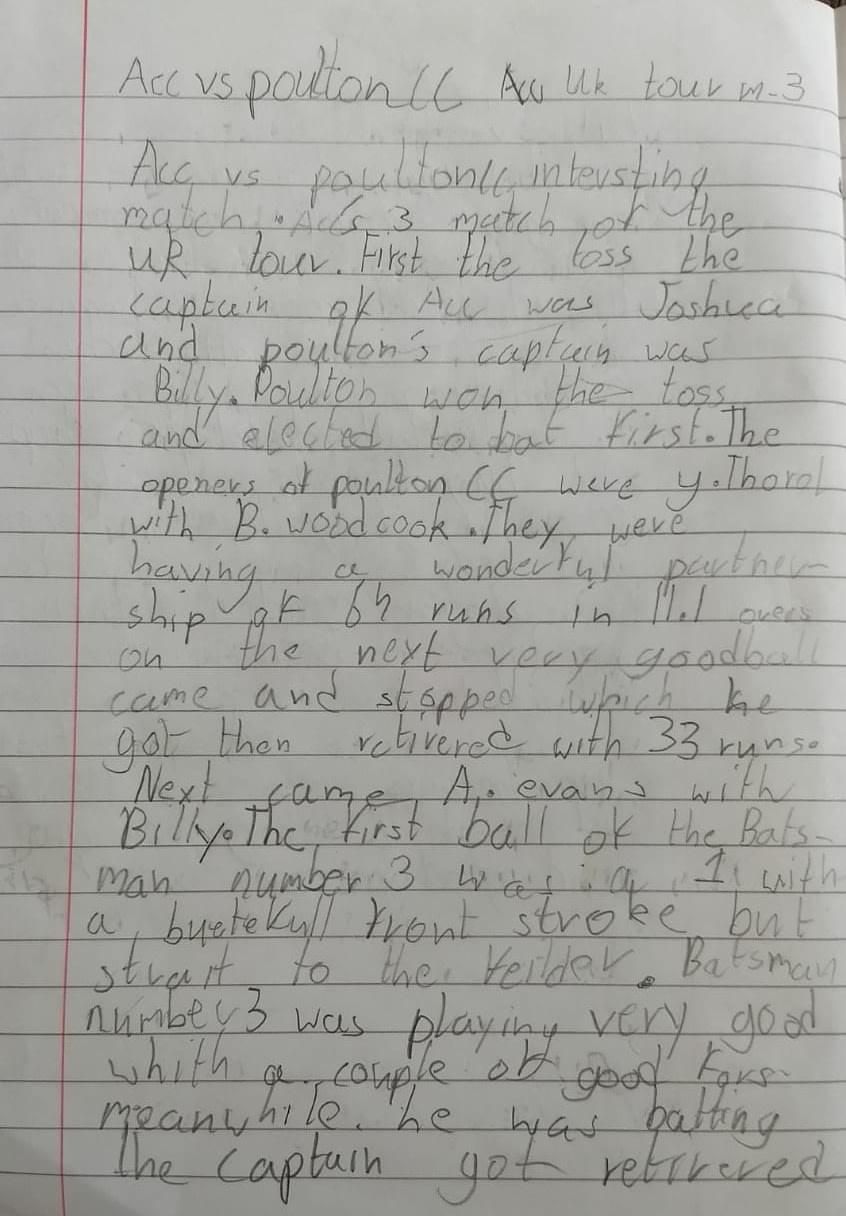 Acc vs poulton CC Acc Uk tour m-3
Acc vs poulton CC intersting
match. Acc's 3 match of the
UK tour. First the toss the
captain of Acc was Joshua
and poulton's captain was
Billy. Poulton won the toss
and elected to bat first. The
openers of poulton CC were y. Thorol
with B. woodcook. They were
having a wonderful partner-
ship of 64 runs in 11.1 overs
on the next very goodball
came and stopped which he
got then retivered with 33 runs.
Next came A. evans with
Billy. The first ball of the Bats-
man number 3 was a 1 with
a buetefull front stroke but
strait to the feilder. Batsman
number 3 was playing very good
whith a couple of good fors.
meanwhile. he was batting
the captain got retirered